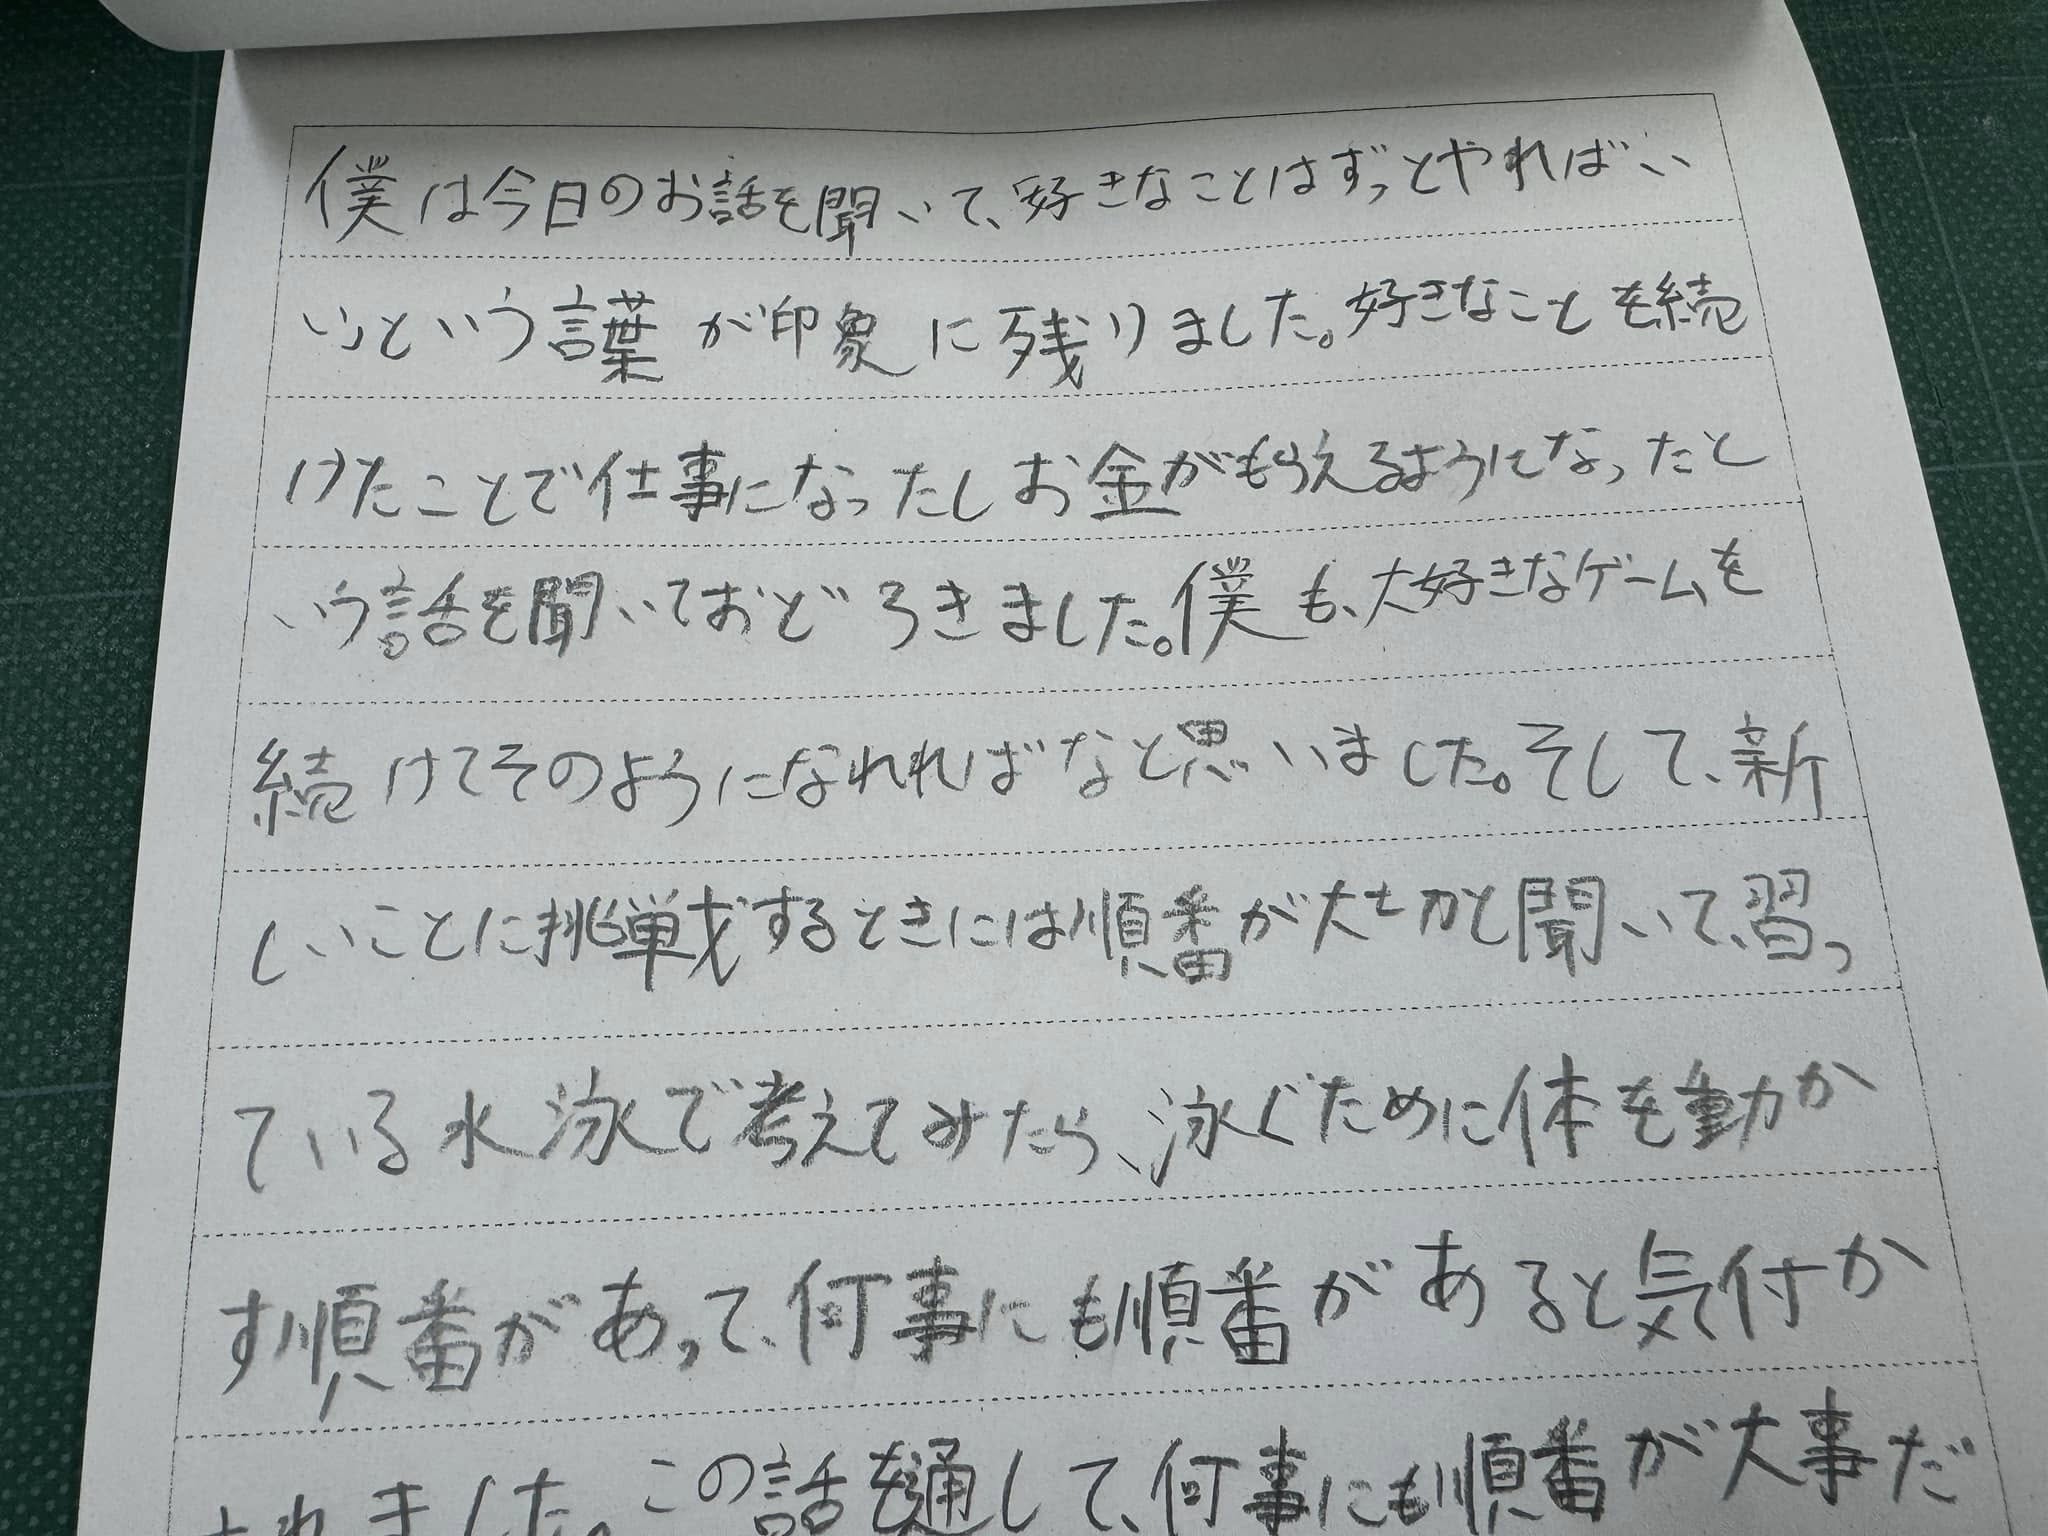 僕は今日のお話を聞いて、「好きなことはずっとやればい
い」という言葉が印象に残りました。好きなことを続
けたことで仕事になったしお金がもらえるようになったと
いう話を聞いておどろきました。僕も、大好きなゲームを
続けてそのようになれればなと思いました。そして、新
しいことに挑戦するときには順番が大切と聞いて、習っ
ている水泳で考えてみたら、泳ぐために体を動か
す順番があって、何事にも順番があると気付か
されました。この話を通して、何事にも順番が大事だ